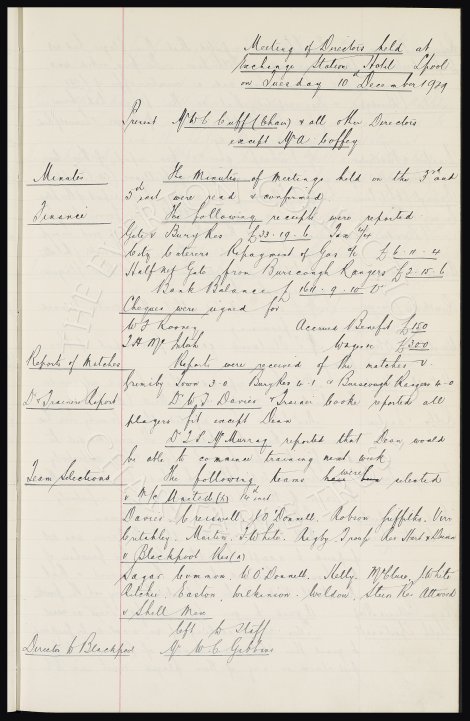 Meeting of Directors held at
Exchange Station Hotel L'pool
on Tuesday 10th December 1929
Present Mr W C Cuff (Chair) & all other Directors
except Mr A Coffey
Minutes
The Minutes of Meetings held on the 3rd and
3rd inst were read & confirmed
Finance
The following receipts were reported
Gate v Bury Res £33-19-6 Tax
City Caterers Repayment of Gas a/c £6-11-4
Half Nef Gate from Burscough Rangers £2-15-6
Bank Balance £1611-9-10
Cheques were signed for
W J Rooney Accrued Benefit £150
T H McIntosh Wages £300
Reports of Matches
Reports were received of the matches v
Grimsby Town 3-0 Bury Res 4-1 & Burscough Rangers 4-0
Dr & Trainers Report
Dr C J Davies & Trainer Cooke reported all
players fit except Dean
Dr J S McMurray reported that Dean would
be able to commence training next week
Team Selections
The following teams were selected
v M/c United (h) 14th inst
Davies Cresswell J O'Donnell Robson Griffiths Virr
Critchley Martin T White Rigby Troup Res Hart & Dunn
v Blackpool Res (a)
Sagar Common W O'Donnell Kelly McClure J White
Ritchie Easton Wilkinson Weldon Stein Res Attwood
v Shell Mex
left to Staff
Director to Blackpool
Mr W C Gibbins
THE EVERTON COLLECTION